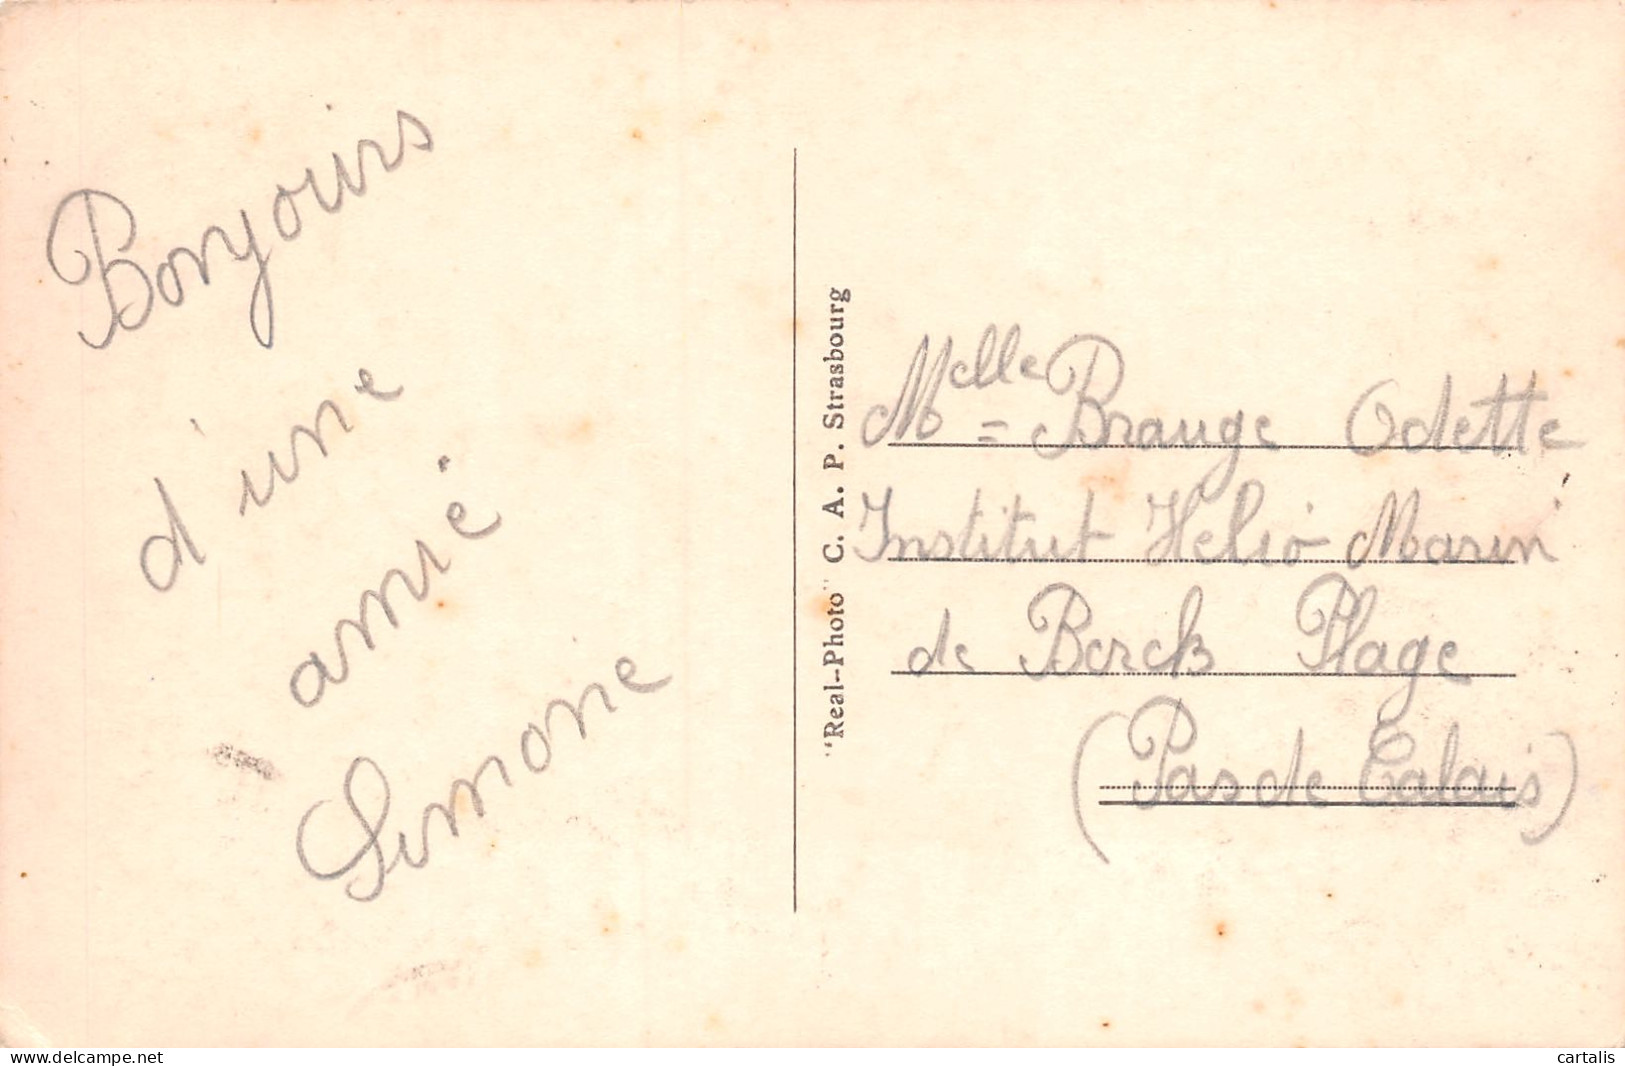 Bonjours
d'une
amie
Simone
"Real--Photo" C. A. P. Strasbourg
Melle = Brauge Odette
Institut Helio Marin
de Berck Plage
(Pas de Calais)
www.delcampe.net
cartalis